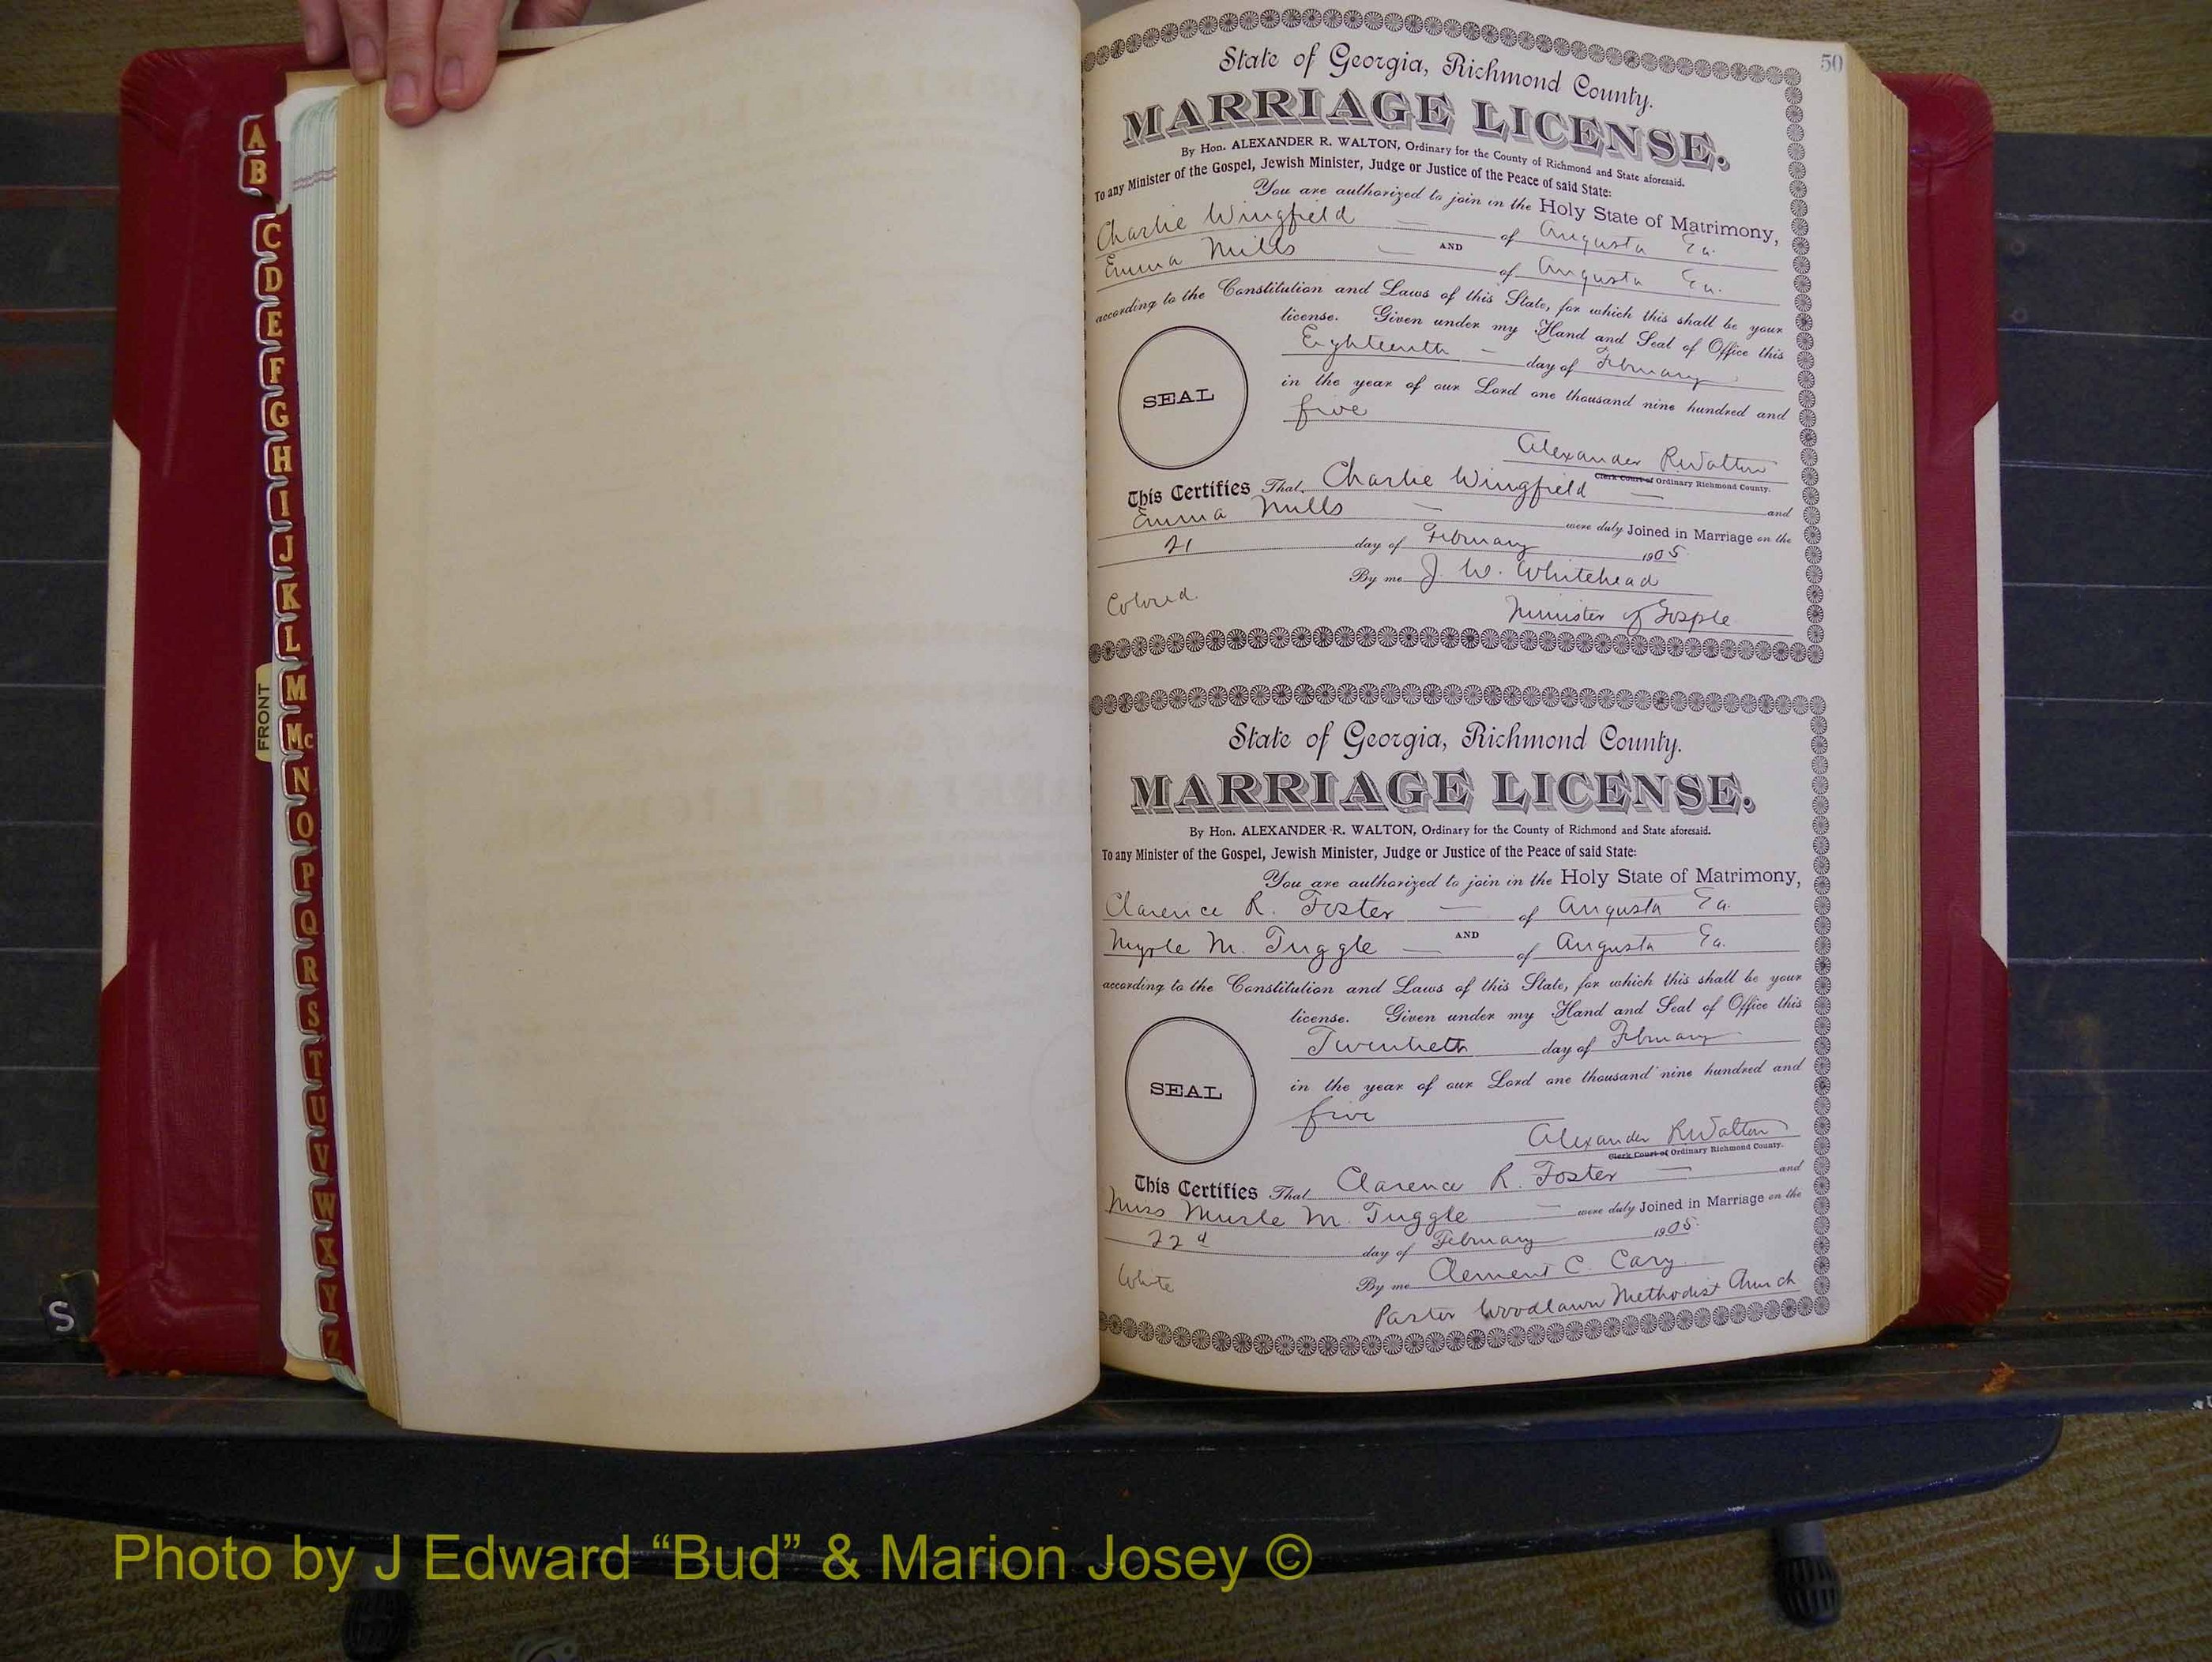 A
B
C
D
E
F
G
H
I
J
K
L
M
Mc
N
O
P
Q
R
S
T
U
V
W
X
Y
Z
FRONT
S
50
State of Georgia, Richmond County.
MARRIAGE LICENSE.
By Hon. ALEXANDER R. WALTON, Ordinary for the County of Richmond and State aforesaid.
To any Minister of the Gospel, Jewish Minister, Judge or Justice of the Peace of said State:
You are authorized to join in the Holy State of Matrimony,
Charlie Wingfield — of Augusta Ga.
AND
Emma Mills — of Augusta Ga.
according to the Constitution and Laws of this State, for which this shall be your
license. Given under my Hand and Seal of Office this
Eighteenth — day of February
in the year of our Lord one thousand nine hundred and
five
SEAL
Alexander R Walton
Clerk Court of Ordinary Richmond County.
This Certifies That Charlie Wingfield — and
Emma Mills — were duly Joined in Marriage on the
21 day of February 1905.
By me J. W. Whitehead
Colored. Minister of Gosple
State of Georgia, Richmond County.
MARRIAGE LICENSE.
By Hon. ALEXANDER R. WALTON, Ordinary for the County of Richmond and State aforesaid.
To any Minister of the Gospel, Jewish Minister, Judge or Justice of the Peace of said State:
You are authorized to join in the Holy State of Matrimony,
Clarence R. Foster — of Augusta Ga.
AND
Myrle M. Tuggle — of Augusta Ga.
according to the Constitution and Laws of this State, for which this shall be your
license. Given under my Hand and Seal of Office this
Twentieth day of February
in the year of our Lord one thousand nine hundred and
five
SEAL
Alexander R Walton
Clerk Court of Ordinary Richmond County.
This Certifies That Clarence R. Foster — and
Miss Murle M. Tuggle — were duly Joined in Marriage on the
22d day of February 1905.
By me Clement C. Cary.
White Pastor Woodlawn Methodist Church
Photo by J Edward “Bud” & Marion Josey ©